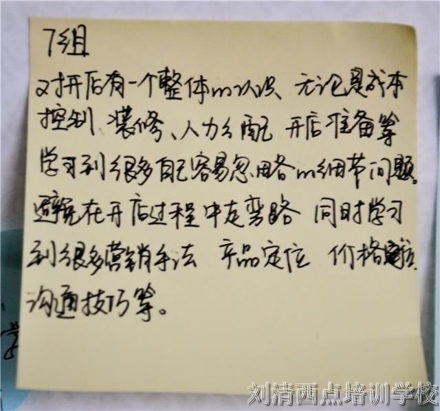 7组
对开店有一个整体的认识 无论是成本
控制、装修、人力分配 开店准备等
学习到很多自己容易忽略的细节问题。
避免在开店过程中走弯路 同时学习
到很多营销手法 产品定位 价格定位
沟通技巧等。
刘清西点培训学校